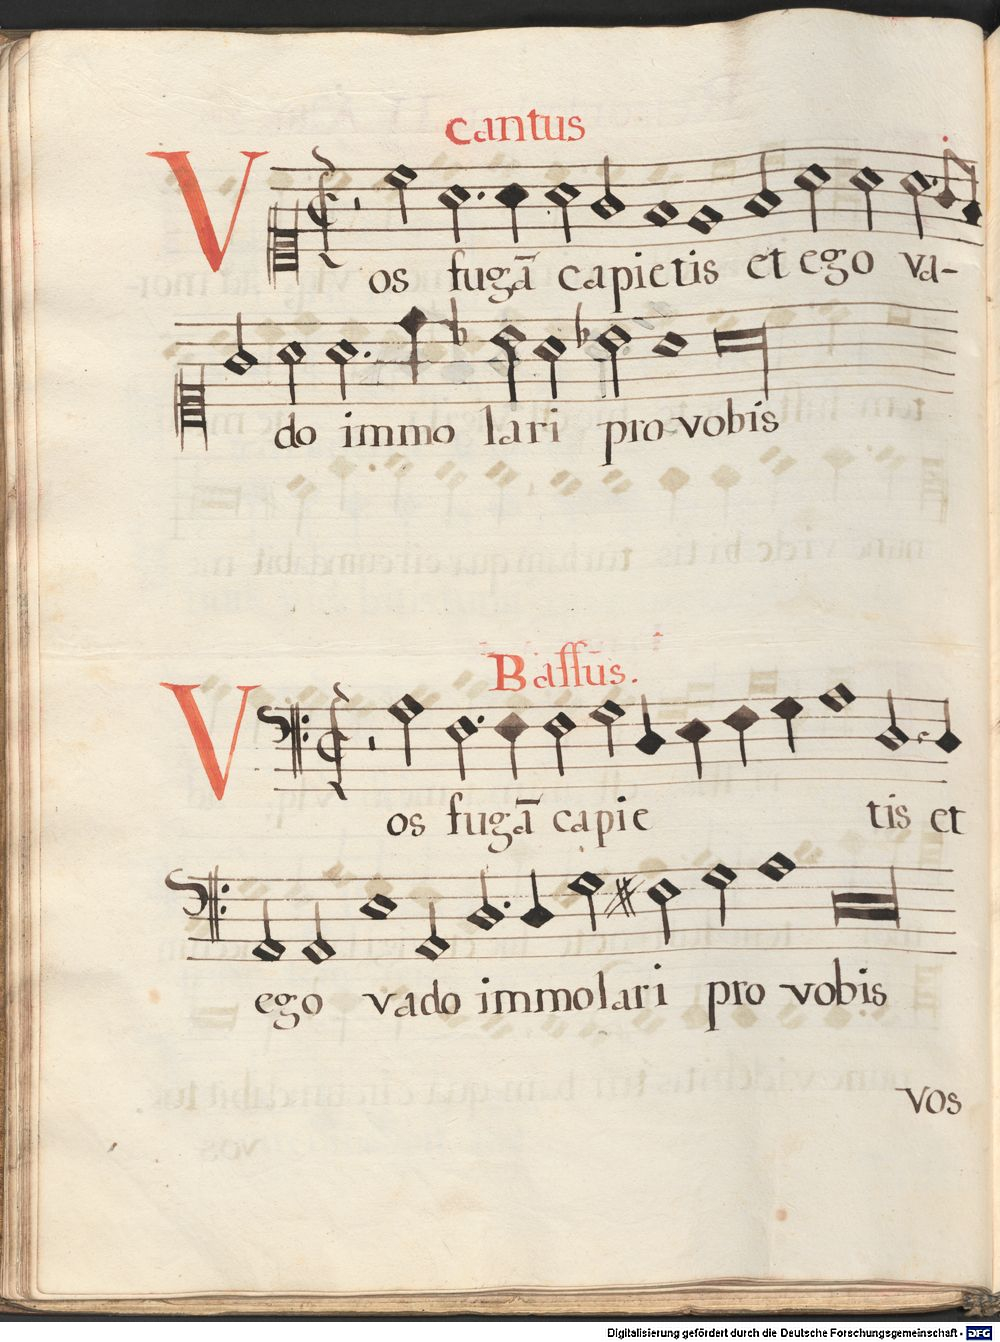 Cantus
Vos fugā capietis et ego va-
do immo lari pro vobis
Bassus.
Vos fugā capie tis et
ego vado immolari pro vobis
vos
Digitalisierung gefördert durch die Deutsche Forschungsgemeinschaft - DFG